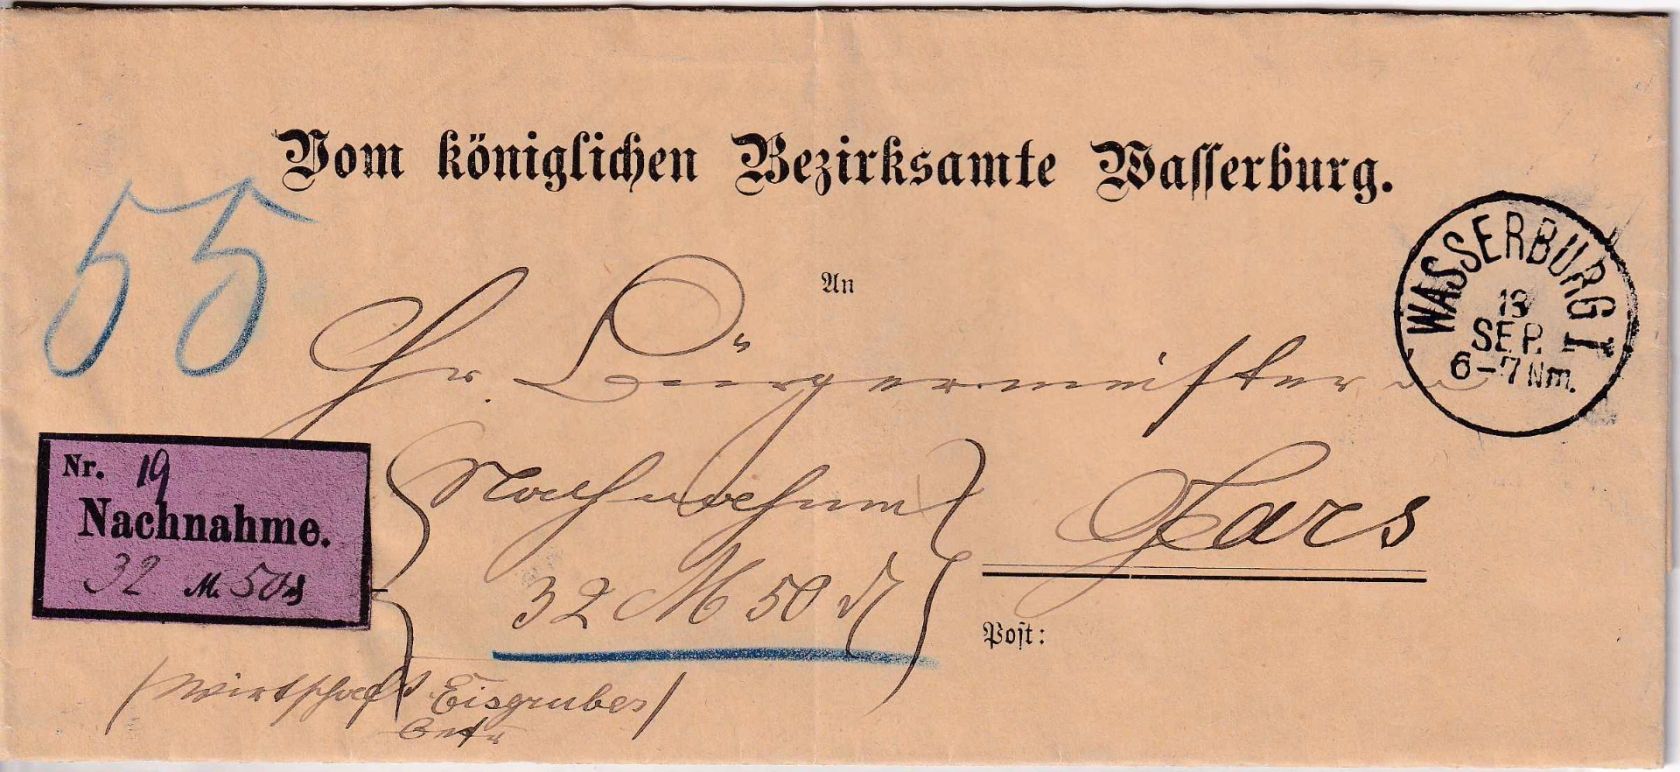 Vom königlichen Bezirksamte Wasserburg.
55
An
WASSERBURG I
13
SEP.
6-7 Nm.
Hr. Bürgermeister in
Gars
Nr. 19
Nachnahme.
32 M. 50 ₰
Nachnahme
32 M 50 ₰
Post:
(Wirtschaft Eisgruber
betr